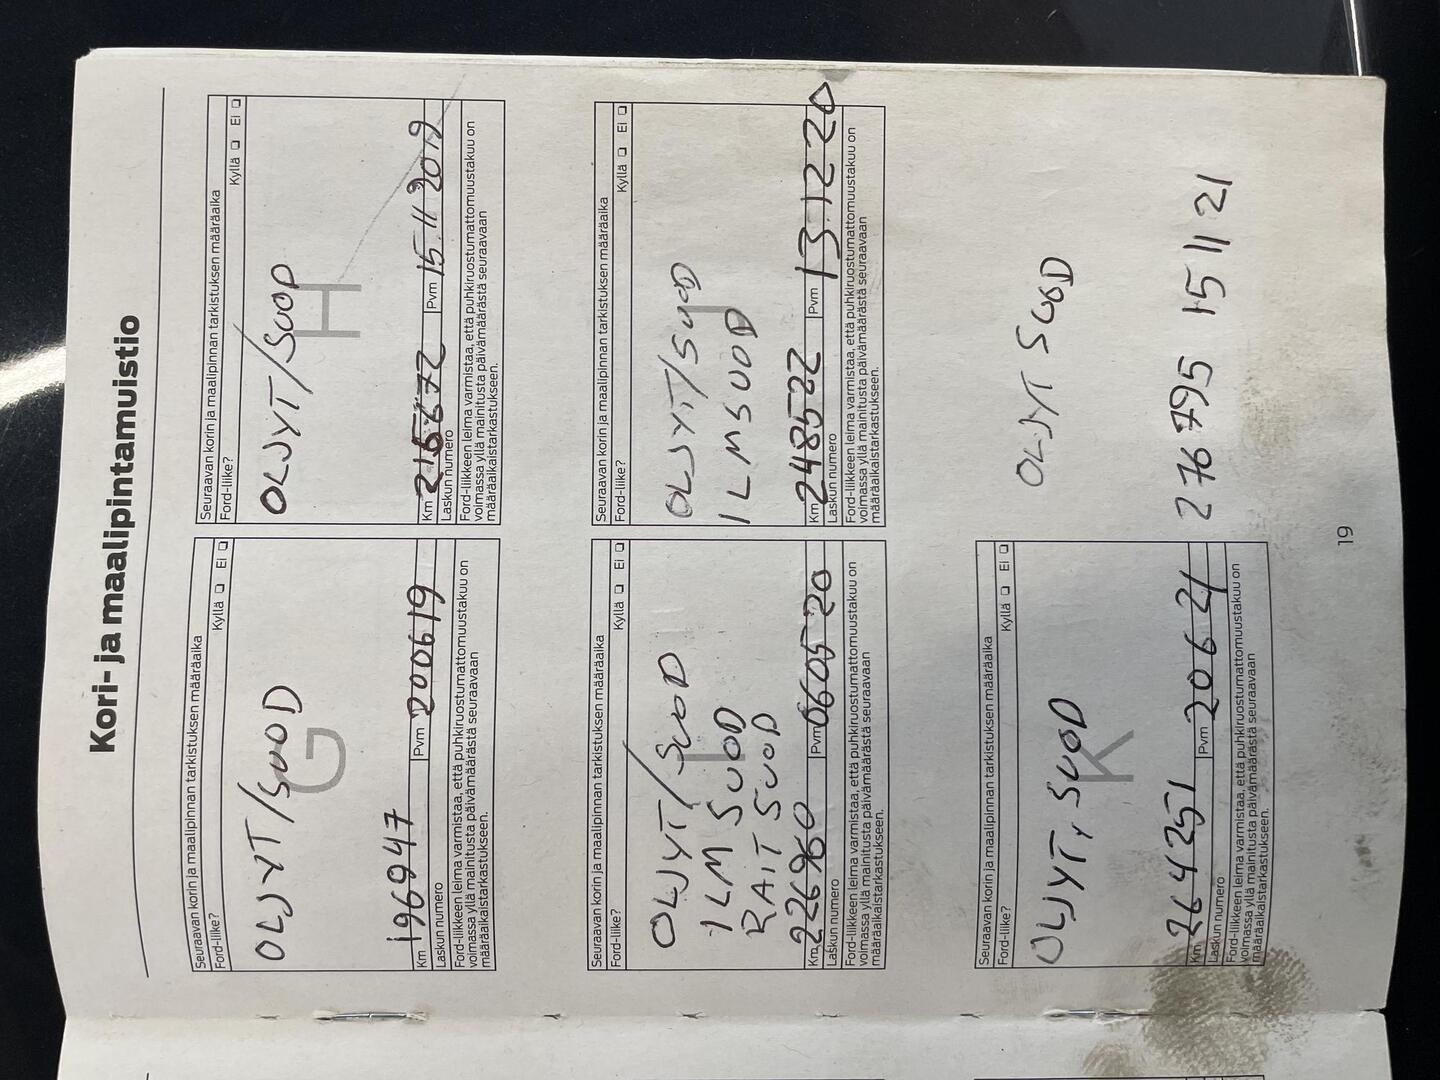 Kori- ja maalipintamuistio
Seuraavan korin ja maalipinnan tarkistuksen määräaika
Ford-liike?
Kyllä ❏ Ei ❏
G
OLJYT/SUOD
196947
Km
Pvm 200619
Laskun numero
Ford-liikkeen leima varmistaa, että puhkiruostumattomuustakuu on
voimassa yllä mainitusta päivämäärästä seuraavaan
määräaikaistarkastukseen.
Seuraavan korin ja maalipinnan tarkistuksen määräaika
Ford-liike?
Kyllä ❏ Ei ❏
H
OLJYT/SUOD
Km 215672
Pvm 15.11 2019
Laskun numero
Ford-liikkeen leima varmistaa, että puhkiruostumattomuustakuu on
voimassa yllä mainitusta päivämäärästä seuraavaan
määräaikaistarkastukseen.
Seuraavan korin ja maalipinnan tarkistuksen määräaika
Ford-liike?
Kyllä ❏ Ei ❏
I
OLJYT/SUOD
ILM SUOD
RAIT SUOD
Km 226960
Pvm 060520
Laskun numero
Ford-liikkeen leima varmistaa, että puhkiruostumattomuustakuu on
voimassa yllä mainitusta päivämäärästä seuraavaan
määräaikaistarkastukseen.
Seuraavan korin ja maalipinnan tarkistuksen määräaika
Ford-liike?
Kyllä ❏ Ei ❏
J
OLJYT/SUOD
ILMSUOD
Km 248522
Pvm 13.12 20
Laskun numero
Ford-liikkeen leima varmistaa, että puhkiruostumattomuustakuu on
voimassa yllä mainitusta päivämäärästä seuraavaan
määräaikaistarkastukseen.
Seuraavan korin ja maalipinnan tarkistuksen määräaika
Ford-liike?
Kyllä ❏ Ei ❏
K
OLJYT, SUOD
Km 264251
Pvm 20 6 21
Laskun numero
Ford-liikkeen leima varmistaa, että puhkiruostumattomuustakuu on
voimassa yllä mainitusta päivämäärästä seuraavaan
määräaikaistarkastukseen.
OLJYT SUOD
276795 15 11 21
19